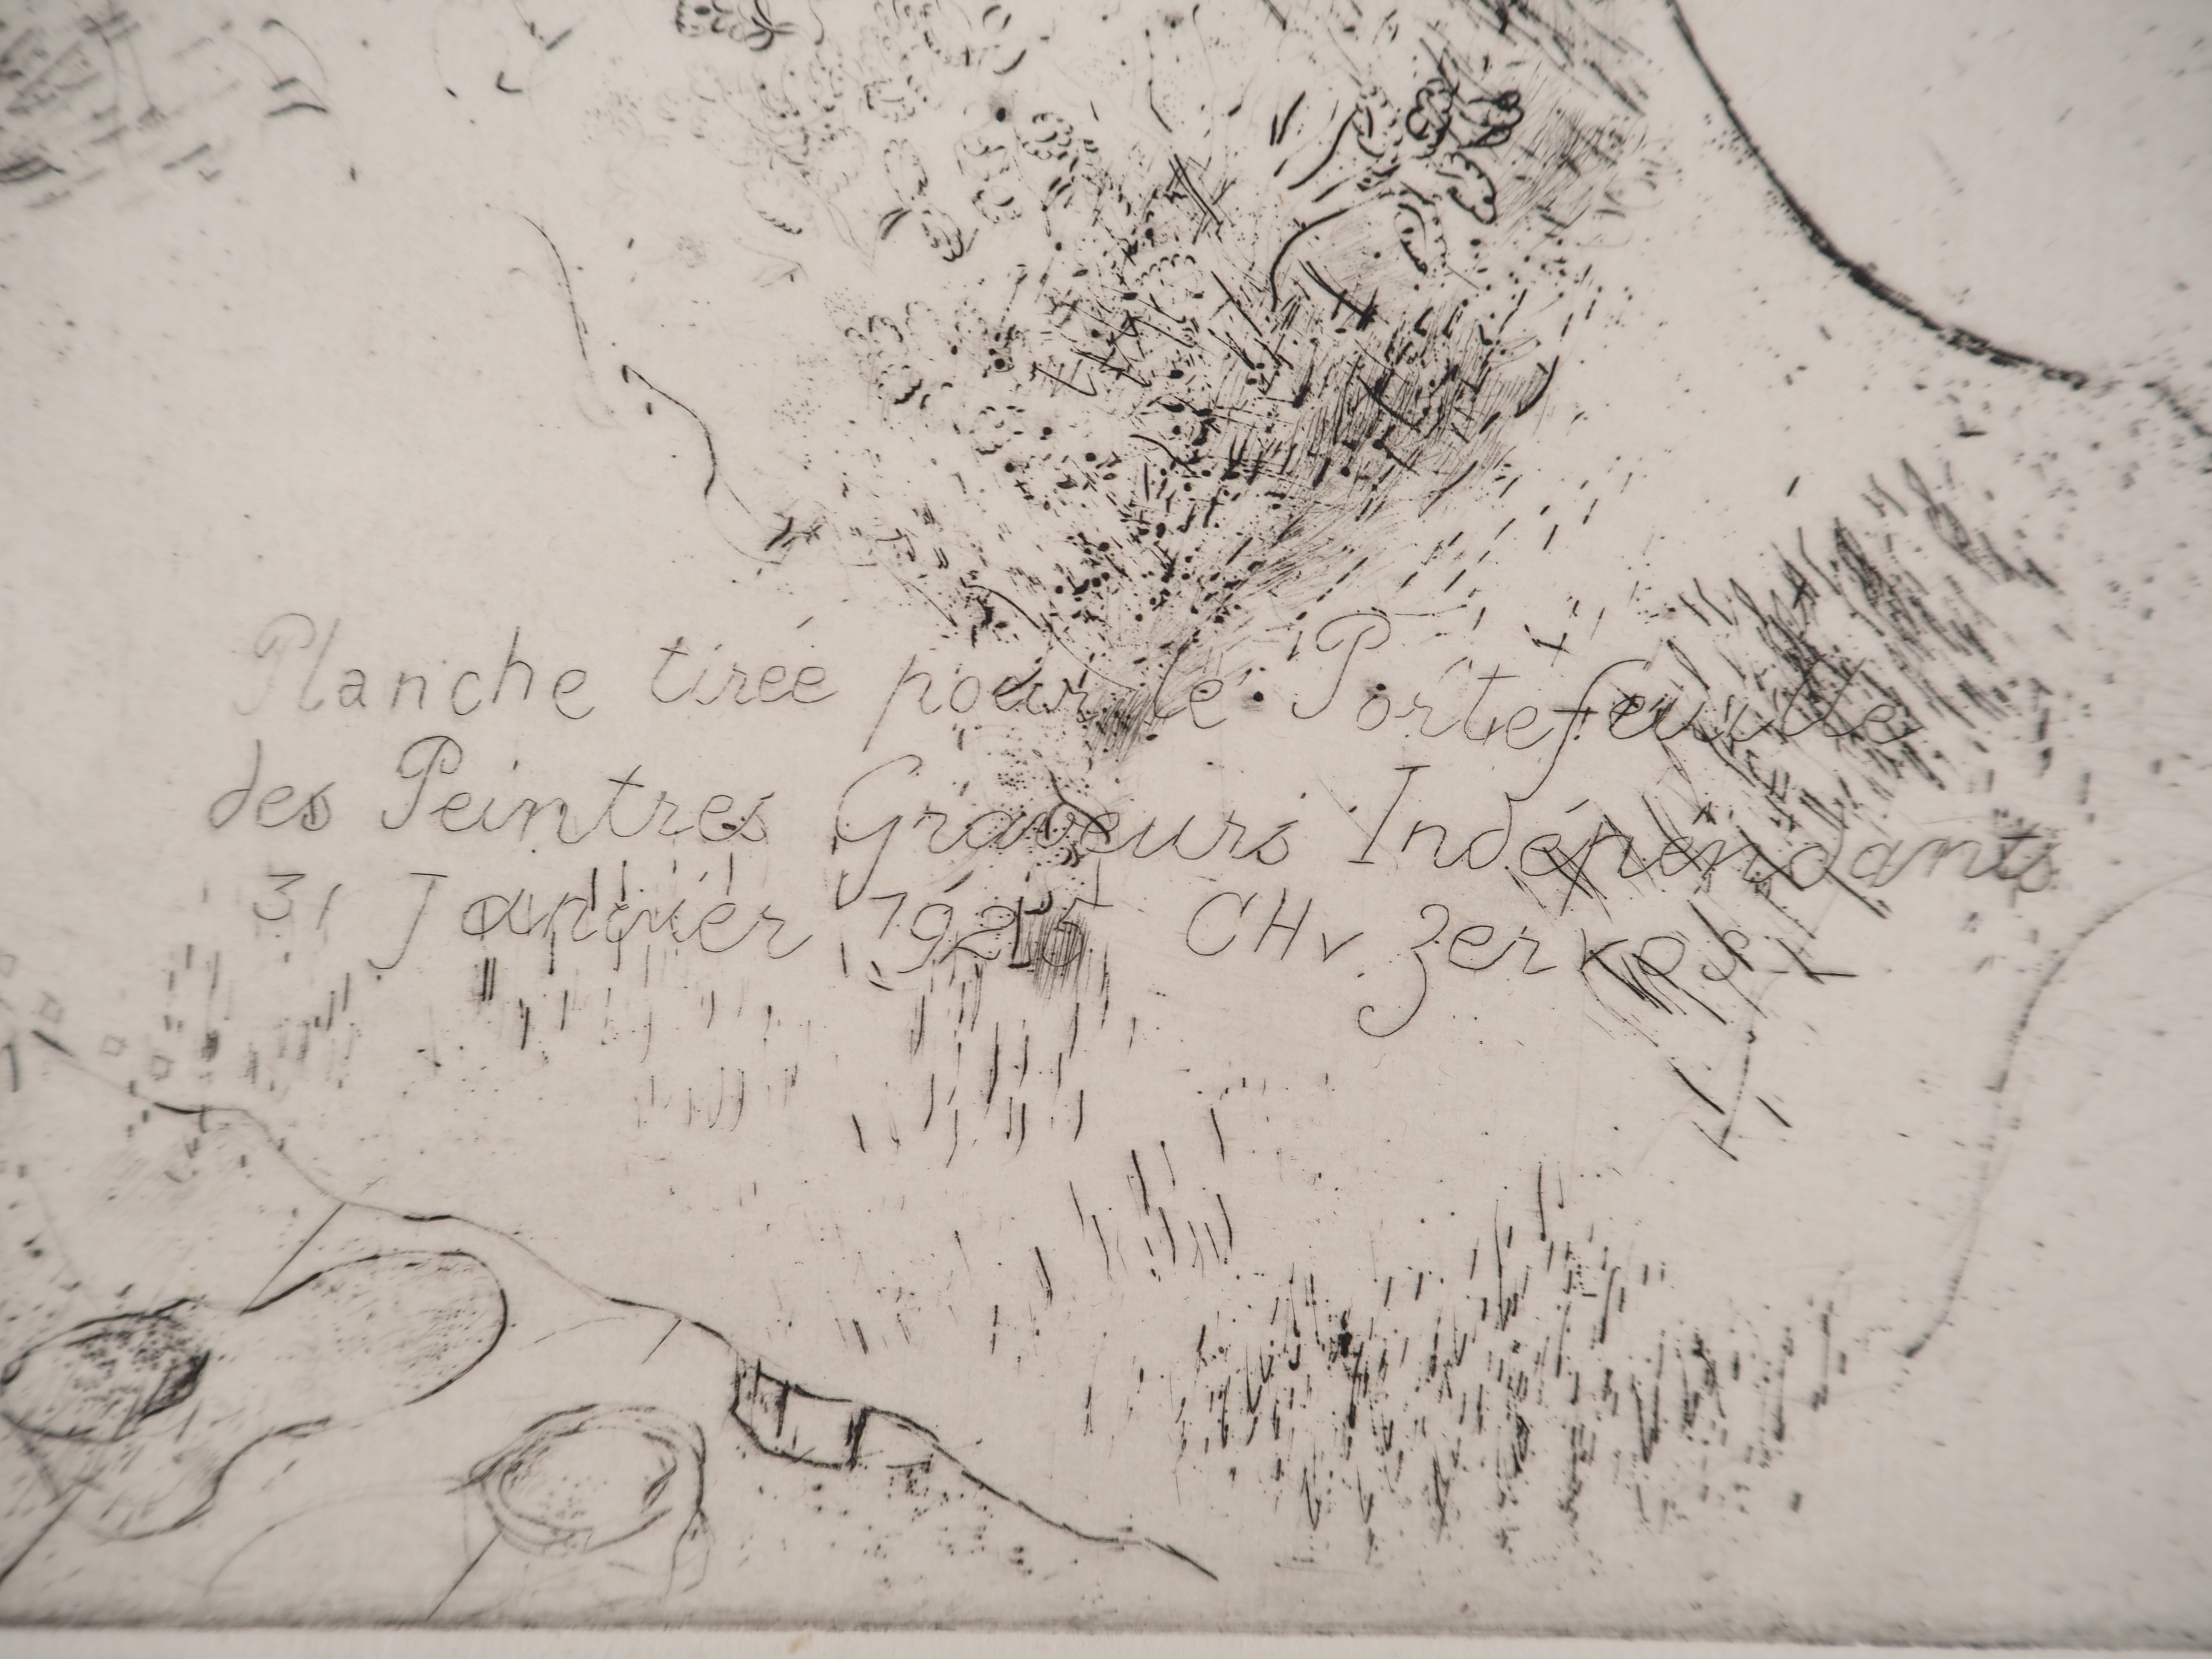 Planche tirée pour le Portefeuille
des Peintres Graveurs Indépendants
31 Janvier 1925 CH